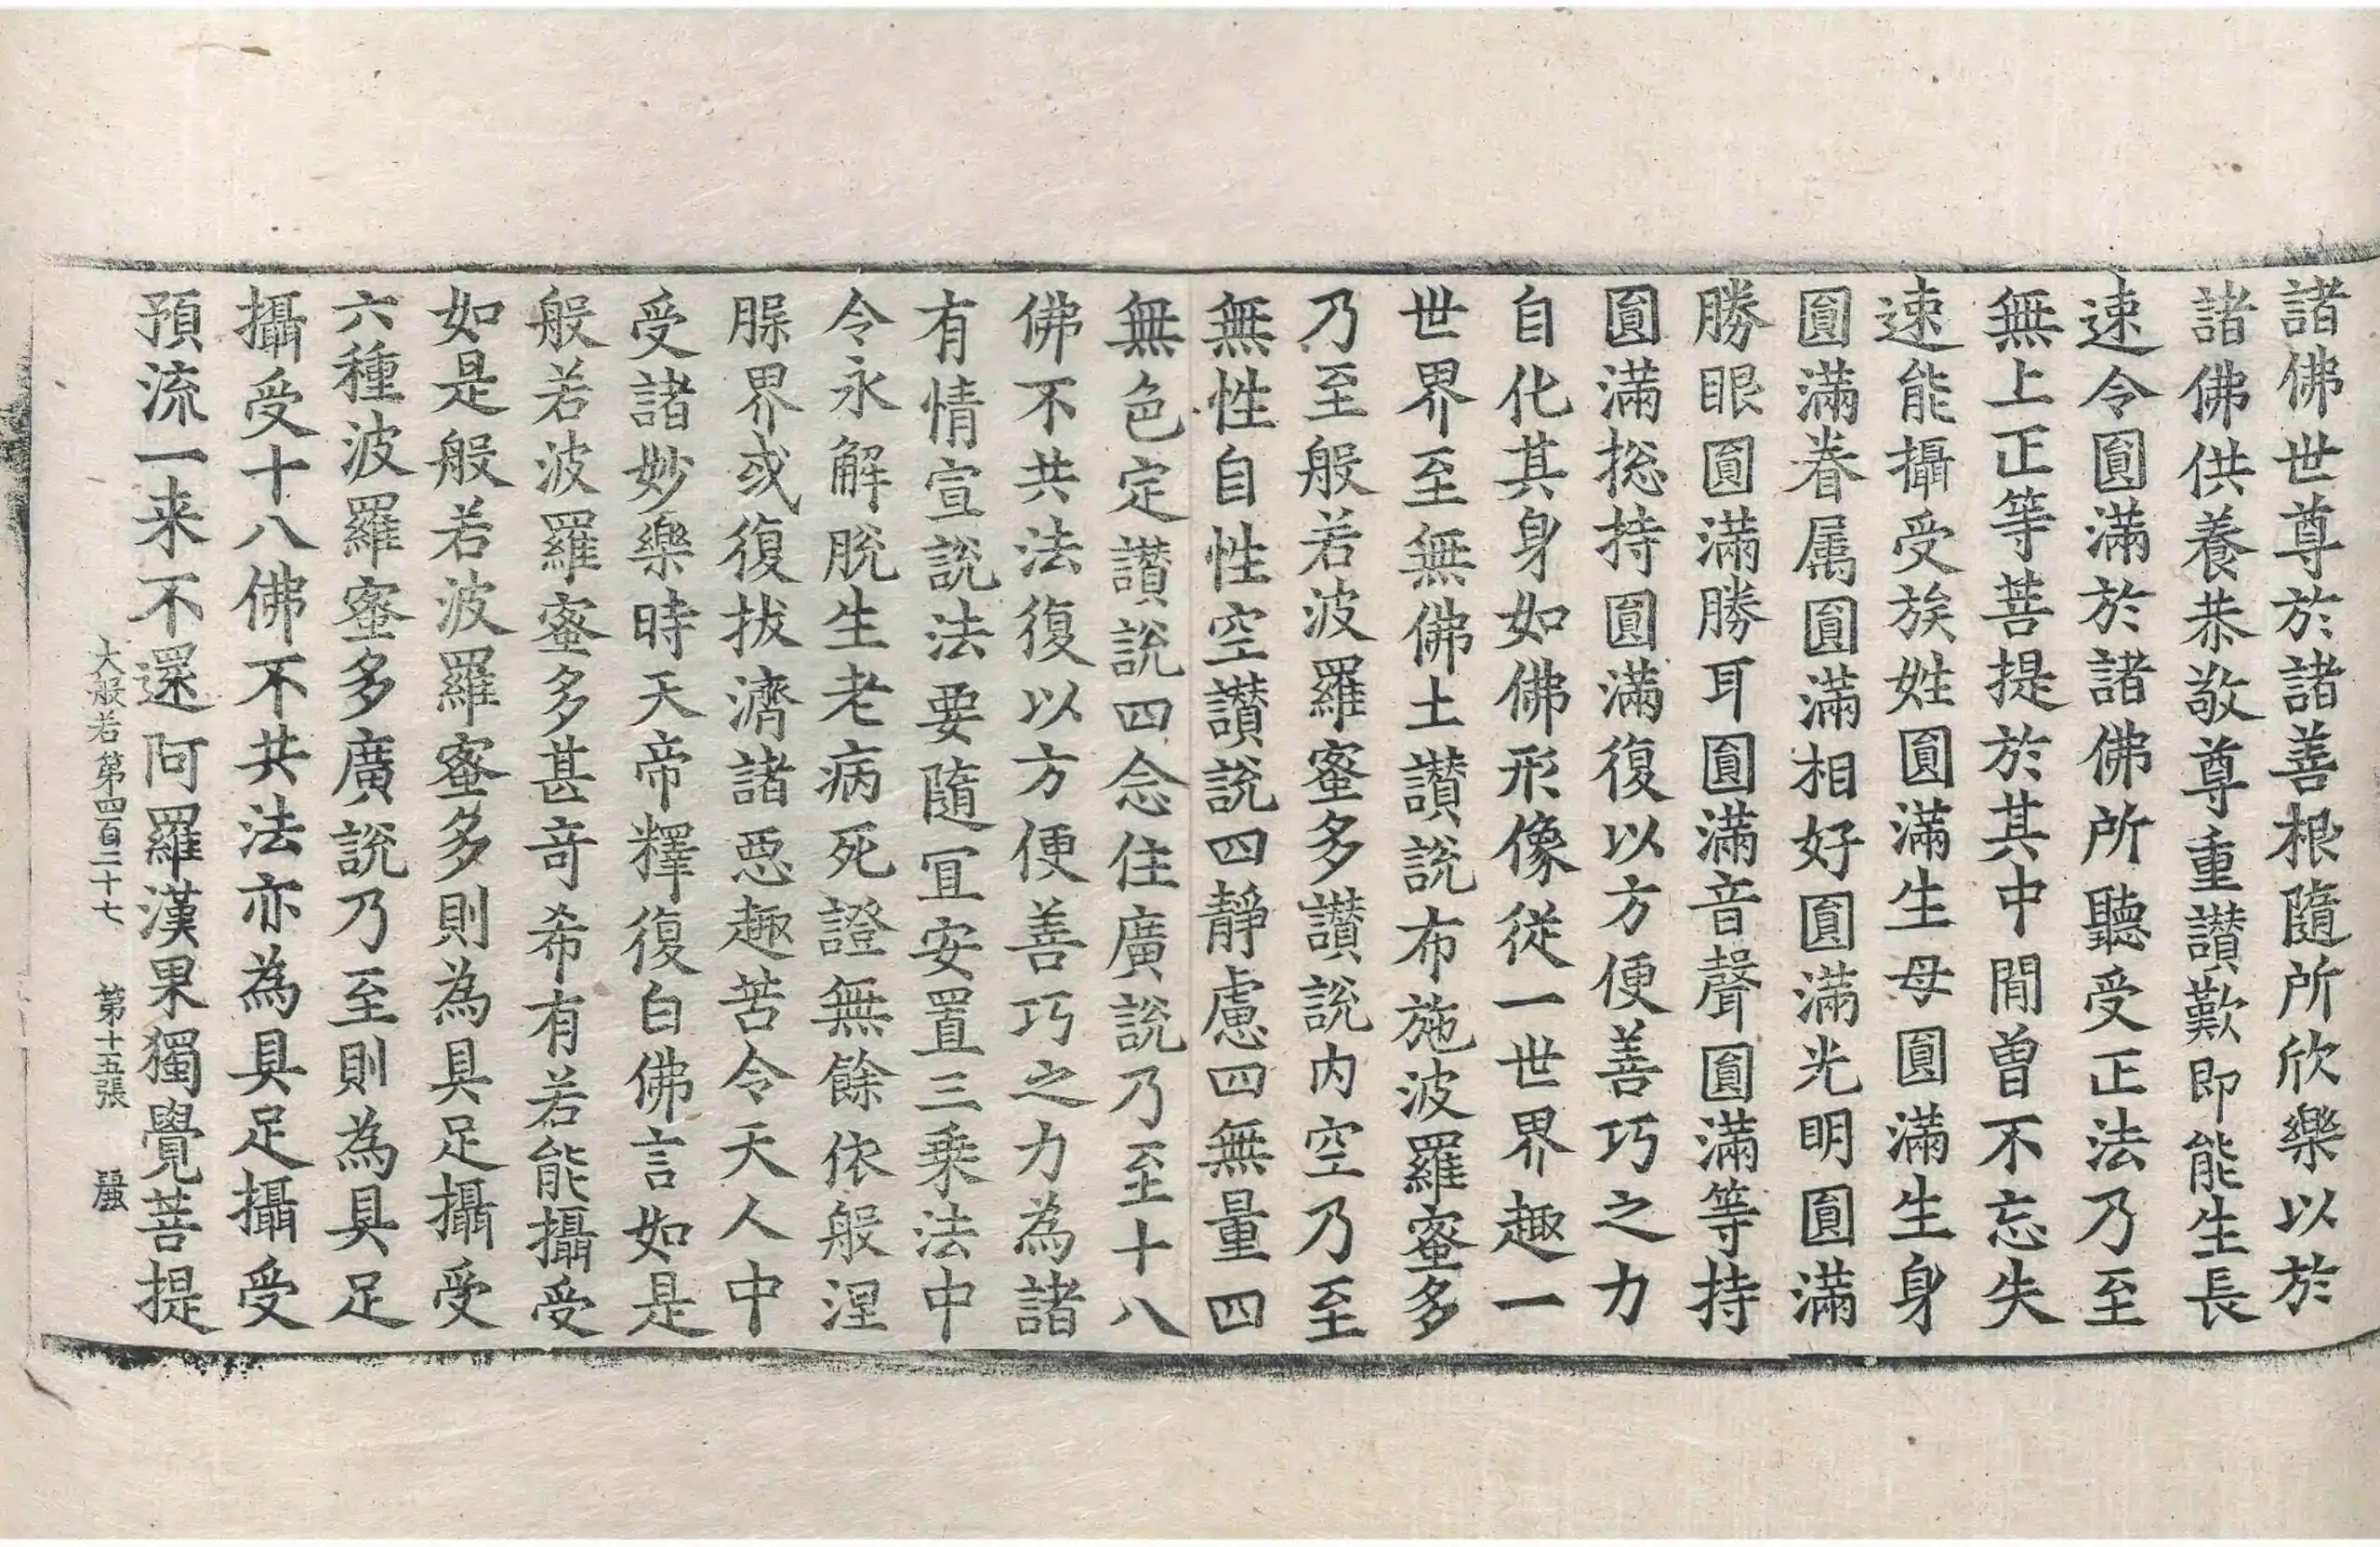 諸佛世尊於諸善根隨所欣樂以於
諸佛供養恭敬尊重讃歎即能生長
速令圓滿於諸佛所聽受正法乃至
無上正等菩提於其中間曾不忘失
速能攝受族姓圓滿生母圓滿生身
圓滿眷属圓滿相好圓滿光明圓滿
勝眼圓滿勝耳圓滿音聲圓滿等持
圓滿捴持圓滿復以方便善巧之力
自化其身如佛形像從一世界趣一
世界至無佛土讃說布施波羅蜜多
乃至般若波羅蜜多讃說内空乃至
無性自性空讃說四靜慮四無量四
無色定讃說四念住廣說乃至十八
佛不共法復以方便善巧之力為諸
有情宣說法要隨冝安置三乘法中
令永解脫生老病死證無餘依般涅
腂界或復拔濟諸惡趣苦令天人中
受諸妙樂時天帝釋復白佛言如是
般若波羅蜜多甚奇希有若能攝受
如是般若波羅蜜多則為具足攝受
六種波羅蜜多廣說乃至則為具足
攝受十八佛不共法亦為具足攝受
預流一来不還阿羅漢果獨覺菩提
大般若第四百二十七 第十五張